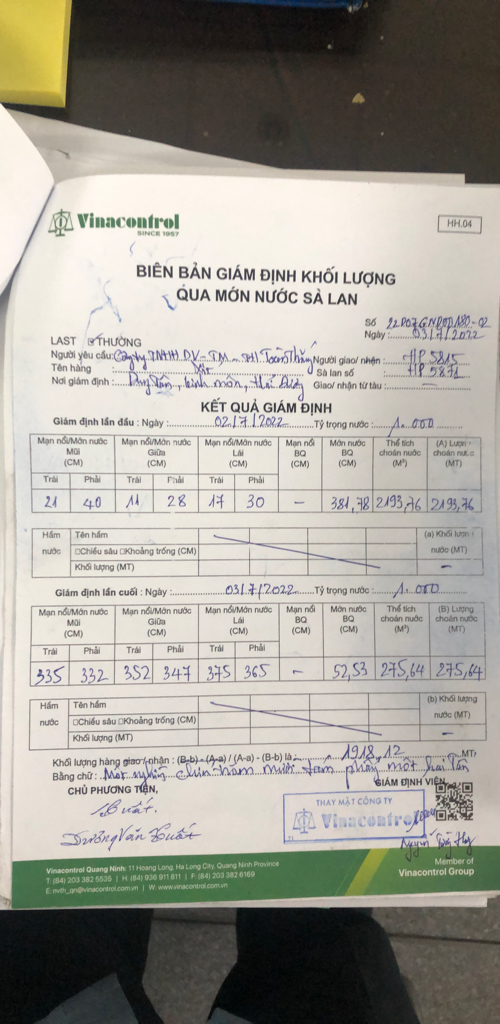 Vinacontrol
SINCE 1957
HH.04
BIÊN BẢN GIÁM ĐỊNH KHỐI LƯỢNG
QUA MỚN NƯỚC SÀ LAN
Số 22D07GNDOD180-02
Ngày : 03/7/2022
LAST THƯỜNG
Người yêu cầu: Công ty TNHH DV-TM-
Người giao/ nhận : HP 5815
Tên hàng :
Sà lan số : HP 5871
Nơi giám định : Duy Tân, Kinh môn, Hải Dương
Giao/ nhận từ tàu : —
KẾT QUẢ GIÁM ĐỊNH
Giám định lần đầu : Ngày : 02/7/2022 Tỷ trọng nước : 1.000
Mạn nổi/Mớn nước Mũi (CM) Mạn nổi/Mớn nước Giữa (CM) Mạn nổi/Mớn nước Lái (CM) Mạn nổi BQ (CM) Mớn nước BQ (CM) Thể tích choán nước (M³) (A) Lượng choán nước (MT)
Trái Phải Trái Phải Trái Phải
21 40 11 28 17 30 — 381,78 2193,76 2193,76
Hầm nước Tên hầm (a) Khối lượng nước (MT)
□Chiều sâu □Khoảng trống (CM)
Khối lượng (MT) —
Giám định lần cuối : Ngày : 03/7/2022 Tỷ trọng nước : 1.000
Mạn nổi/Mớn nước Mũi (CM) Mạn nổi/Mớn nước Giữa (CM) Mạn nổi/Mớn nước Lái (CM) Mạn nổi BQ (CM) Mớn nước BQ (CM) Thể tích choán nước (M³) (B) Lượng choán nước (MT)
Trái Phải Trái Phải Trái Phải
335 332 352 347 375 365 — 52,53 275,64 275,64
Hầm nước Tên hầm (b) Khối lượng nước (MT)
□Chiều sâu □Khoảng trống (CM)
Khối lượng (MT) —
Khối lượng hàng giao / nhận : (B-b) - (A-a) / (A-a) - (B-b) là : 1918,12 MT
Bằng chữ : Một nghìn chín trăm mười tám phẩy một hai Tấn
CHỦ PHƯƠNG TIỆN,
GIÁM ĐỊNH VIÊN,
THAY MẶT CÔNG TY
Vinacontrol
Vinacontrol Quang Ninh: 11 Hoang Long, Ha Long City, Quang Ninh Province
T: (84) 203 382 5535 | H: (84) 936 911 811 | F: (84) 203 382 6169
E: nvth_qn@vinacontrol.com.vn | W: www.vinacontrol.com.vn
Member of
Vinacontrol Group